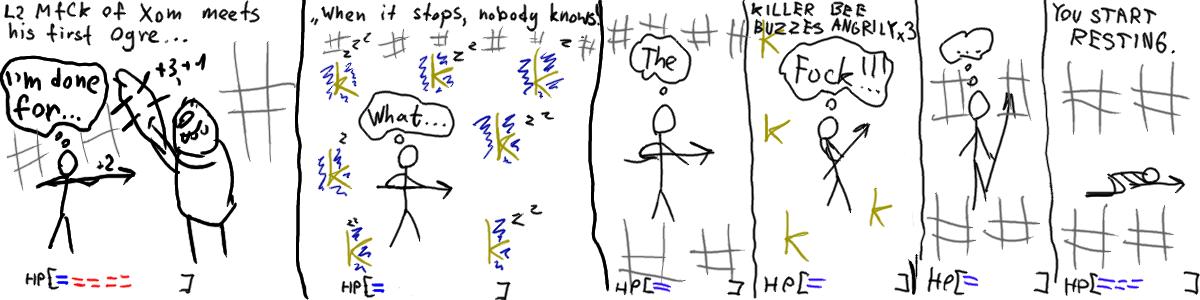 L2 MfCk of Xom meets
his first Ogre...
I'm done
for...
+3,+1
+2
HP[= ==== ]
„When it stops, nobody knows.
z z z
z z
z
What...
z z
z
z z
z z
k k k k k k k
HP[= ]
The
HP[= ]
KILLER BEE
BUZZES ANGRILY x3
k
Fuck!!!
...
k
k
k
HP[= ]
...
HP[= ]
YOU START
RESTING.
HP[=== ]